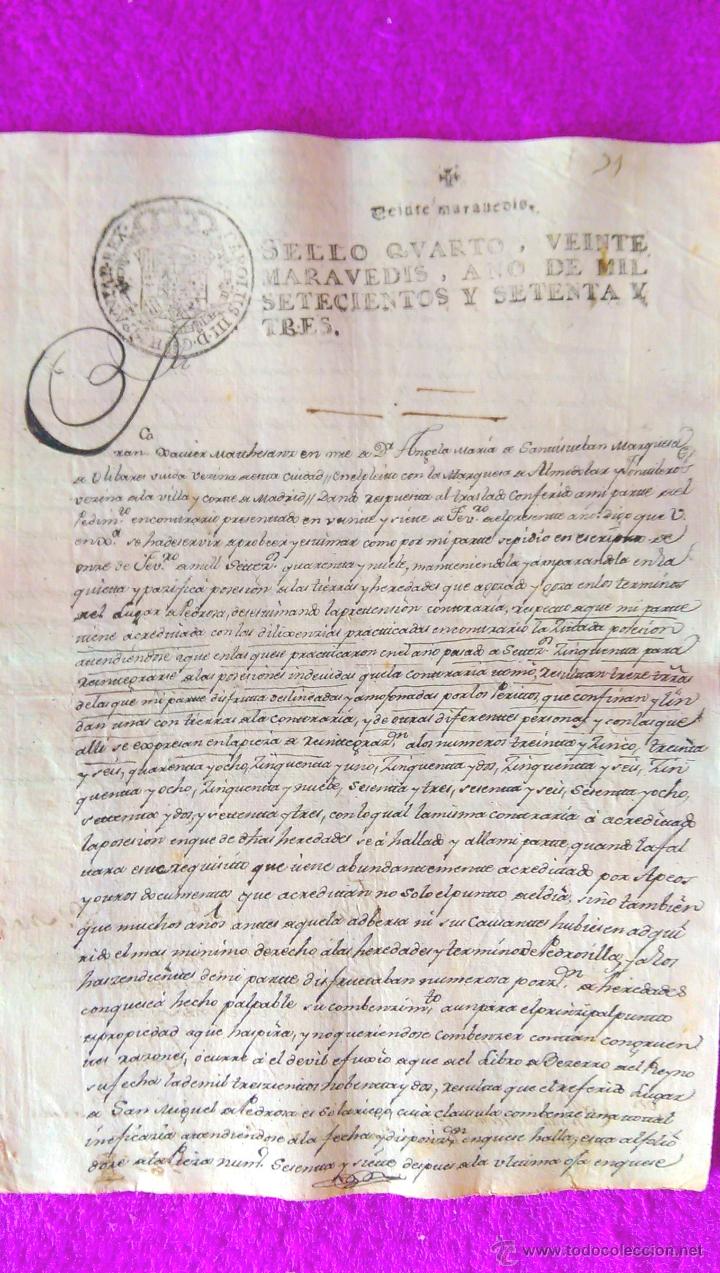 21
Veinte maravedis.
SELLO QVARTO, VEINTE
MARAVEDIS, AÑO DE MIL
SETECIENTOS Y SETENTA Y
TRES.
CAROLUS III D. G. HISPANIAR. REX
Fran.co Xavier Marchesanz en nre de D.a Angela Maria de Santisteban Marquesa
de Olibares viuda vezina de esta ciudad // en el pleito con la Marquesa de
vezina de la villa y corte de Madrid // Dando respuesta al traslado conferido a mi parte del
Pedim.to en contrario presentado en veinte y siete de Fev.ro del presente año, digo que V.
se ha de servir aprobeer y estimar como por mi parte se pidio en escripto de
onze de Fev.ro de mill Setez.os quarenta y nuebe, manteniendola y amparandola en la
quieta y pazifica posesion de las tierras y heredades que a gozado y goza en los terminos
del Lugar de Pedrosa, desestimando la pretension contraria, respecto a que mi parte
tiene acreditada con las dilixenzias practicadas en contrario la zitada posesion
atendiendose a que en las que se practicaron en el año pasado de Setez.os Zinquenta para
reintegrarse de las posesiones indevidas que la contraria tomó, resultan treze trras
de las que mi parte disfruta deslindadas y amojonadas por los Peritos, que confinan y lin
dan unas con tierras de la contraria, y de otras diferentes personas, y con las que
alli se expresan en la pieza de reintegraz.on a los numeros treinta y Zinco, treinta
y seis, quarenta y ocho, Zinquenta y uno, Zinquenta y dos, Zinquenta y seis, Zin
quenta y ocho, Zinquenta y nuebe, Sesenta y tres, sesenta y seis, Sesenta y ocho,
setenta y dos, y setenta y tres, con lo qual la misma contraria á acreditado
la posesion en que de dhas heredades se á hallado y alla mi parte, quando la fal
tara este requisito que tiene abundantemente acreditado por Apeos
y otros documentos que acreditan no solo el punto del dia, sino tambien
que muchos años antes de que la adbersa ni sus Causantes hubiesen adqui
rido el mas minimo derecho a las heredades y termino de Pedrosilla, ya los
haszendientes de mi parte disfrutaban numerosa porz.on de heredades
con que se á hecho palpable su combenzim.to aun para el prinzipal punto
de propiedad a que haspira, y no queriendose combenzer con tan congruen
tes razones, ocurre á el devil efuxio de que del Libro de Bezerro del Reyno
su fecha la de mil treszientos nobenta y dos, resulta que el referido Lugar
de San Miguel de Pedrosa es solariego, cuia clausula combenze una total
ineficazia atendiendose a la fecha y disposiz.on en que se halla, esta al folio
doze de la Pieza num.o Sesenta y siete despues de la ultima oja en que se
www.todocoleccion.net